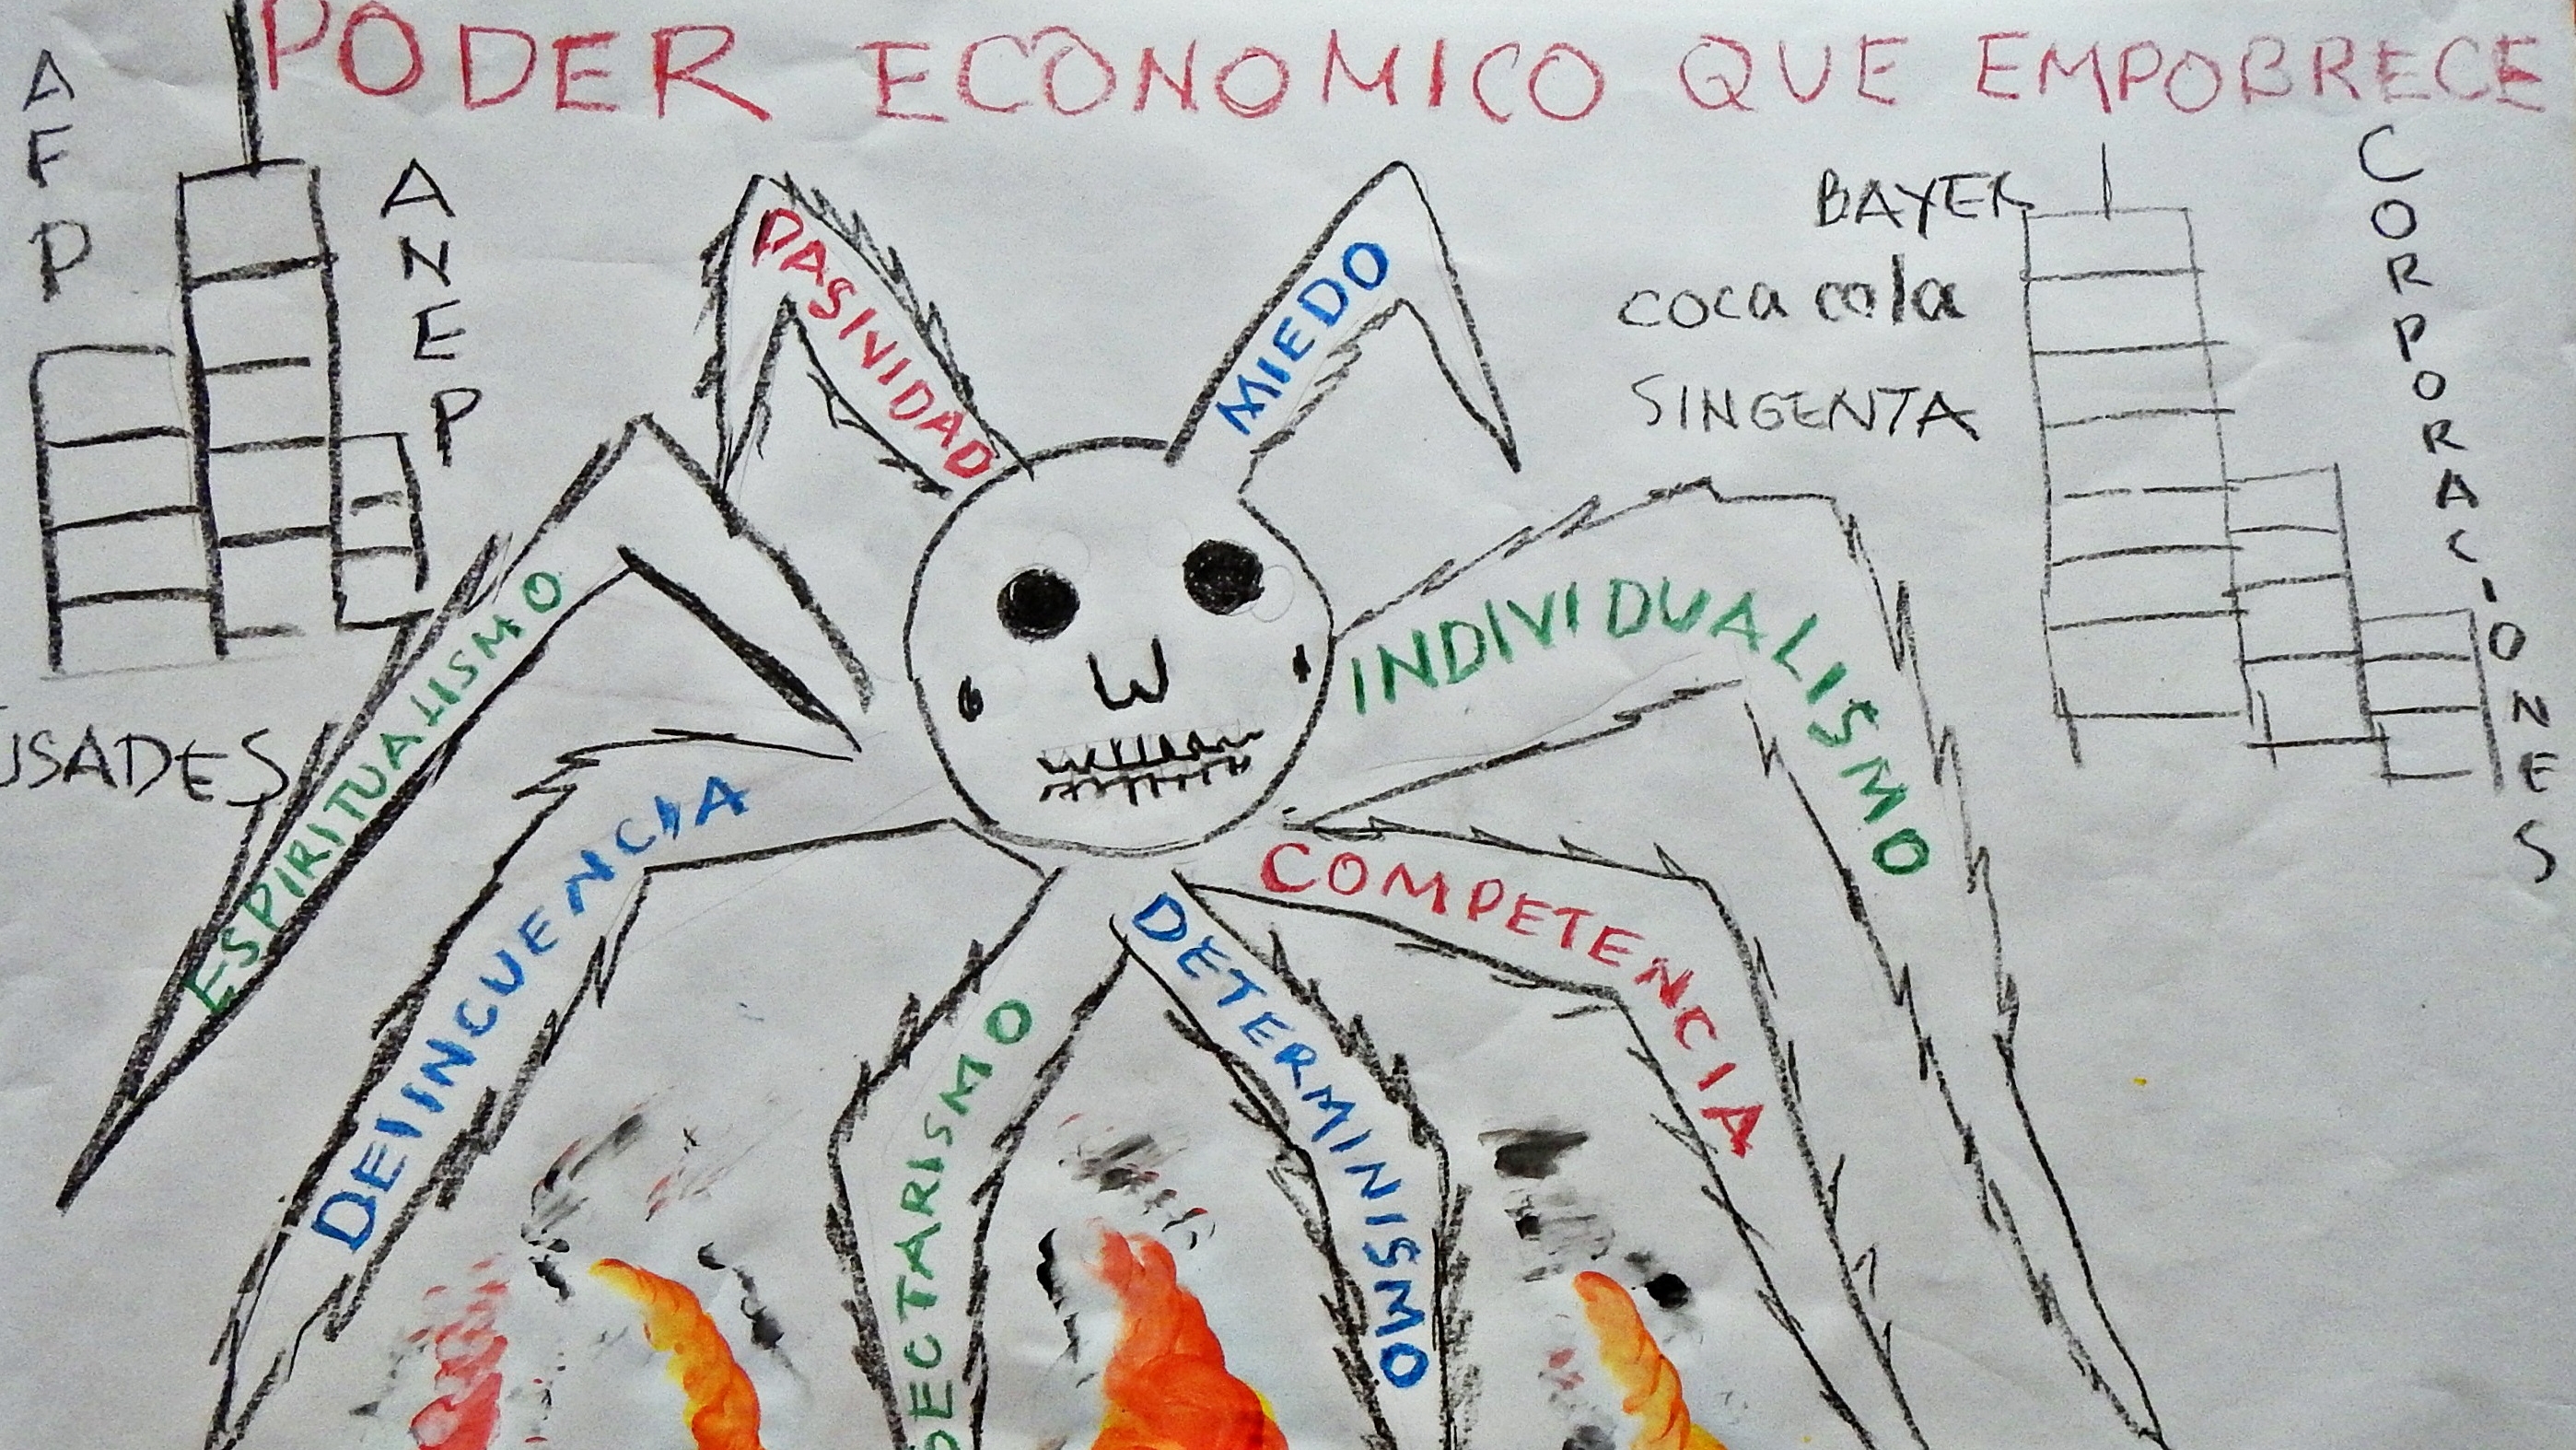 PODER ECONOMICO QUE EMPOBRECE
AFP
ANEP
PASIVIDAD
MIEDO
BAYER
coca cola
SINGENTA
CORPORACIONES
USADES
ESPIRITUALISMO
DElINCUENCIA
SECTARISMO
DETERMINISMO
COMPETENCIA
INDIVIDUALISMO